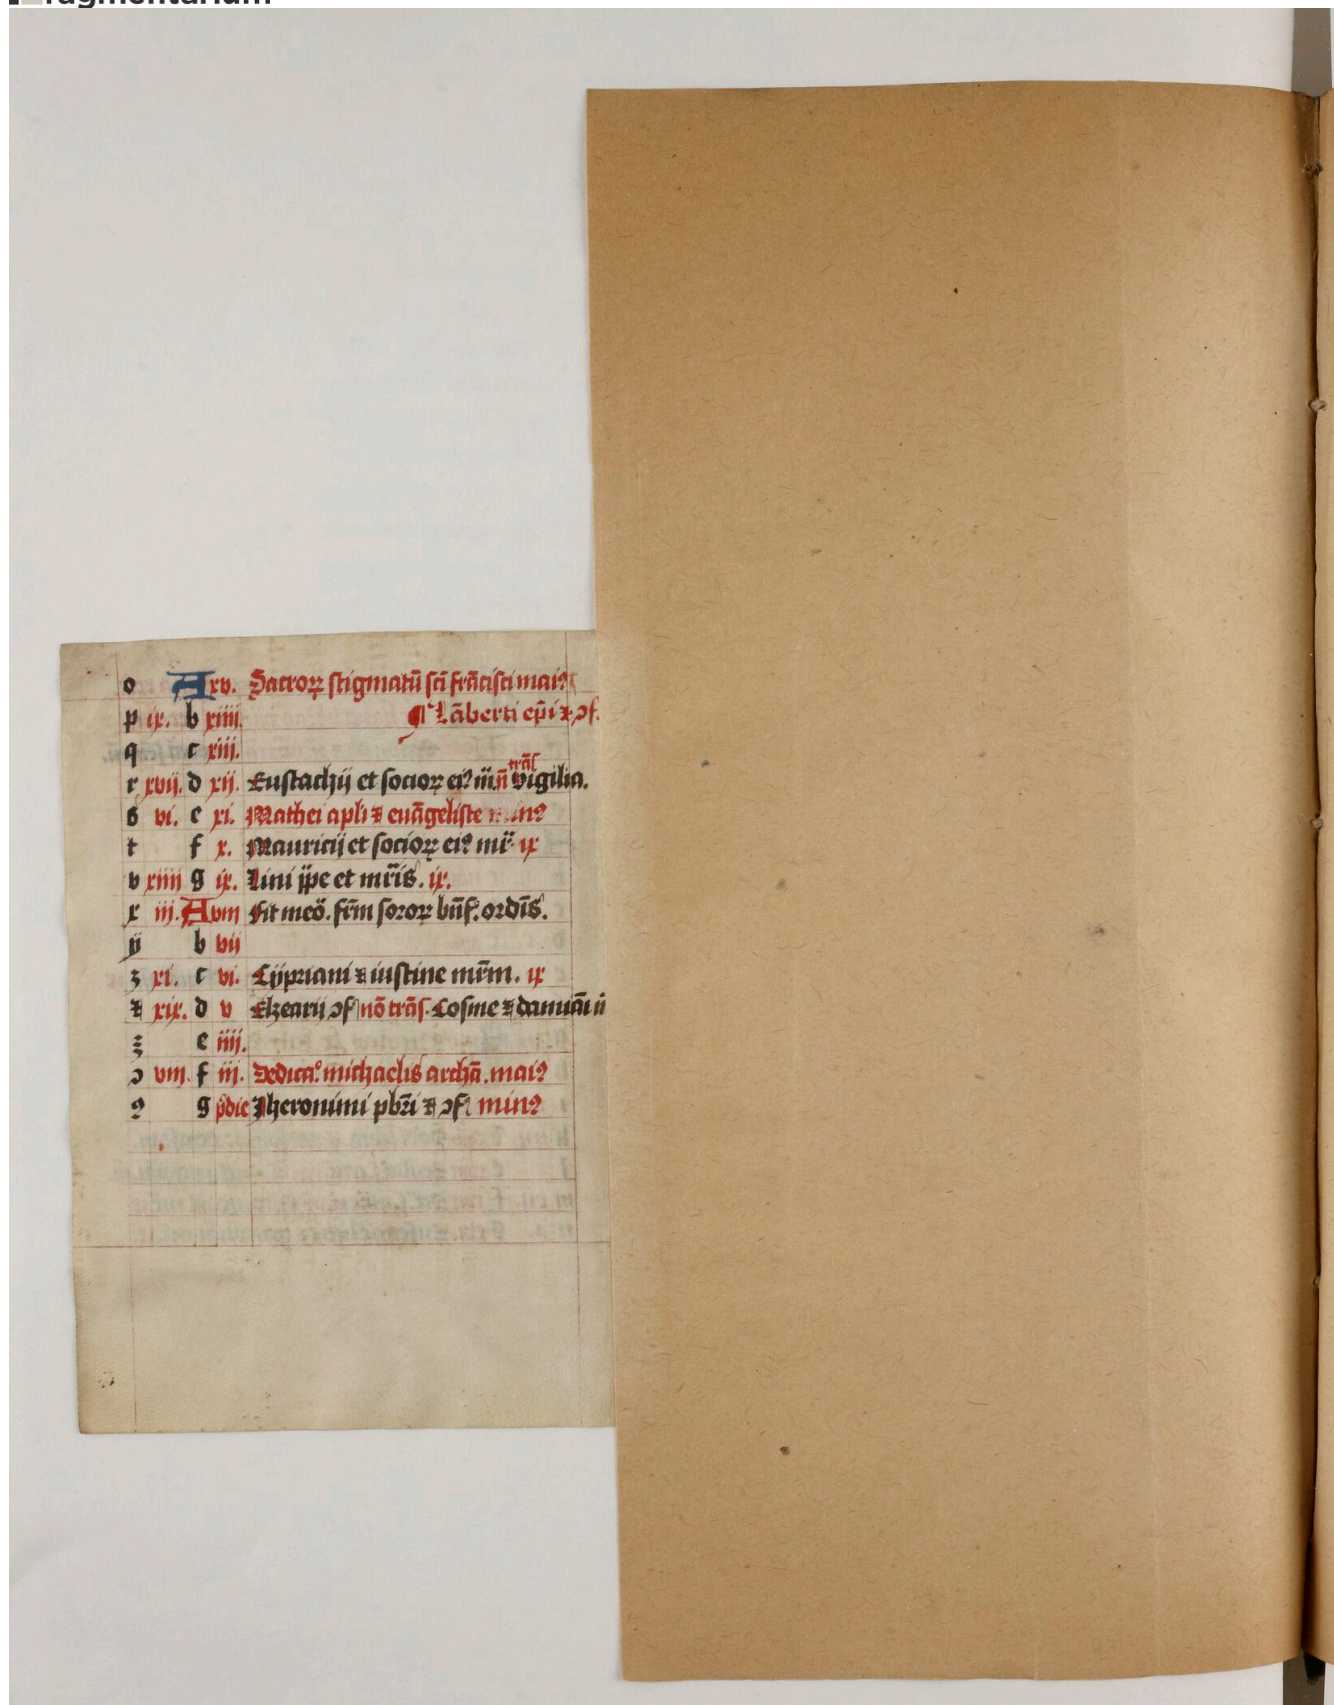 o A xv. Sacroꝝ stigmatū sc̄i frācisci maiꝰ
p ix. b xiiii. Lāberti ep̄i ⁊ ɔf.
q c xiii.
r xvij. d xij. Eustachij et socioꝝ eiꝰ nō trās vigilia.
s vi. e xi. Mathei apl̄i ⁊ euāgeliste minꝰ
t f x. Mauricij et socioꝝ eiꝰ mr̄ ix
v xiiii g ix. Lini pp̄e et mr̄is. ix.
x iij. A viii Fit meō. frm̄ soroꝝ bn̄f. ordīs.
ÿ b vii
z xi. c vi. Cÿpriani ⁊ iustine mr̄m. ix
⁊ xix. d v Elzearij ɔf nō trās. Cosme ⁊ damiāi
ꝫ e iiij.
ɔ viii. f iij. Dedicaᵒ. michaelis archā. maiꝰ
ꝯ g p̄die Jheronimi pbr̄i ⁊ ɔf minꝰ